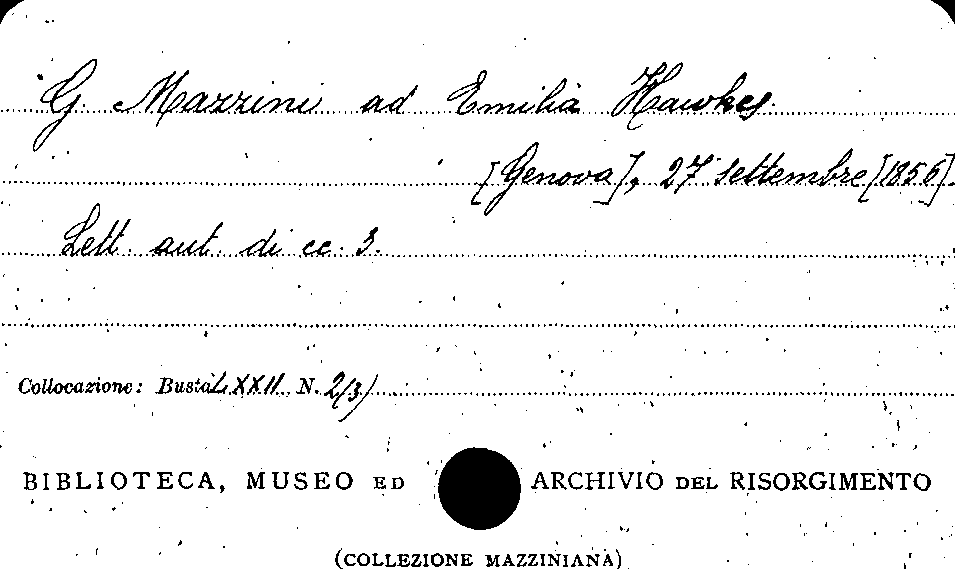 G. Mazzini ad Emilia Hawkes.
[Genova], 27 settembre [1856].
Lett. aut. di cc. 3.
Collocazione: Busta LXXII N. 2(3)
BIBLIOTECA, MUSEO ED ARCHIVIO DEL RISORGIMENTO
(COLLEZIONE MAZZINIANA)